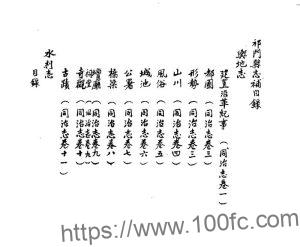 祁門縣志補目錄
輿地志
建置沿革紀事(同治志卷一)
都圖(同治志卷三)
形勢(同治志卷三)
山川(同治志卷四)
風俗(同治志卷五)
城池(同治志卷六)
公署(同治志卷七)
橋梁(同治志卷八)
壇廟(同治志卷九)
祠堂(同治志卷九)
寺觀(同治志卷十)
古蹟(同治志卷十一)
水利志
目錄
https://www.100fc.com